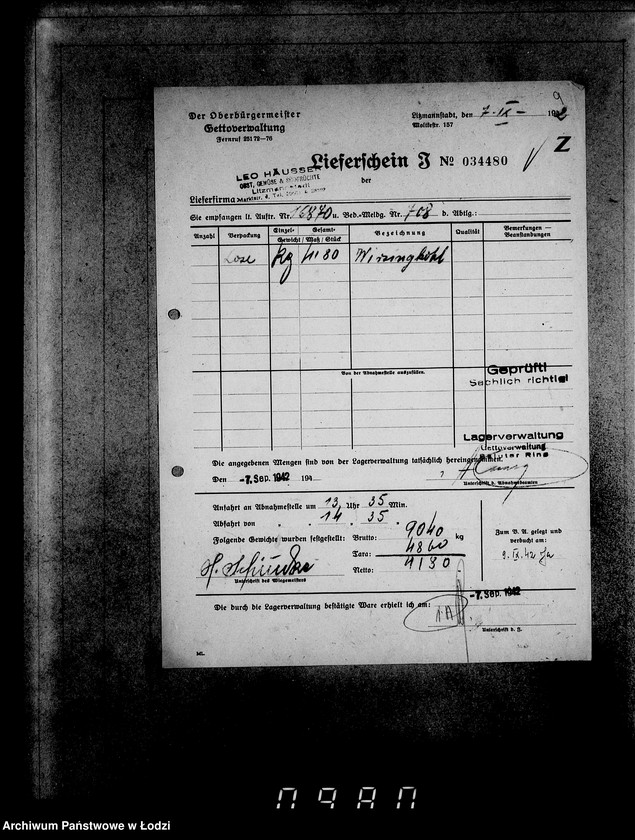 Der Oberbürgermeister
Gettoverwaltung
Fernruf 251 72–76
Litzmannstadt, den 7. IX – 1942
Moltkestr. 157
Z
Lieferschein J № 034480
der
LEO HÄUSSER
OBST, GEMÜSE &
Litzmannstadt
Lieferfirma
Sie empfangen lt. Auftr. Nr. 16870 u. Bed.-Meldg. Nr. 708 d. Abtlg.:
Anzahl Verpackung Einzel- Gesamt- Bezeichnung Qualität Bemerkungen –
Gewicht / Maß / Stück Beanstandungen
Lose Kg 4180 Wirsingkohl
Von der Abnahmestelle auszufüllen.
Geprüft!
Sachlich richtig!
Lagerverwaltung
Gettoverwaltung
Baluter Ring
Die angegebenen Mengen sind von der Lagerverwaltung tatsächlich hereingenommen.
Den -7. Sep. 1942 194
Unterschrift d. Abnahmebeamten
Anfahrt an Abnahmestelle um 13 Uhr 35 Min.
Abfahrt von " " 14 " 35 "
Folgende Gewichte wurden festgestellt: Brutto: 9040 kg
Tara: 4860
Netto: 4180
Zum B. A. gelegt und
verbucht am:
9. IX. 42
Unterschrift des Wiegemeisters
Die durch die Lagerverwaltung bestätigte Ware erhielt ich am: -7. Sep. 1942
Unterschrift d.
Archiwum Państwowe w Łodzi